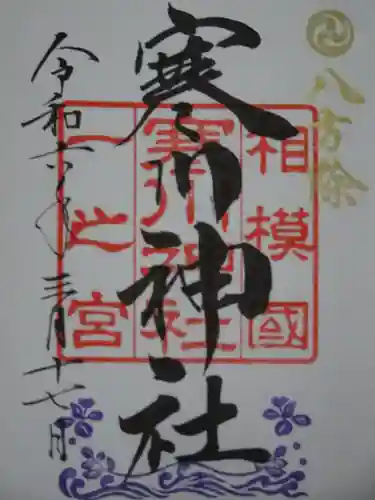 八方除
寒川神社
相模國
寒川神社
一之宮
令和六年三月十七日